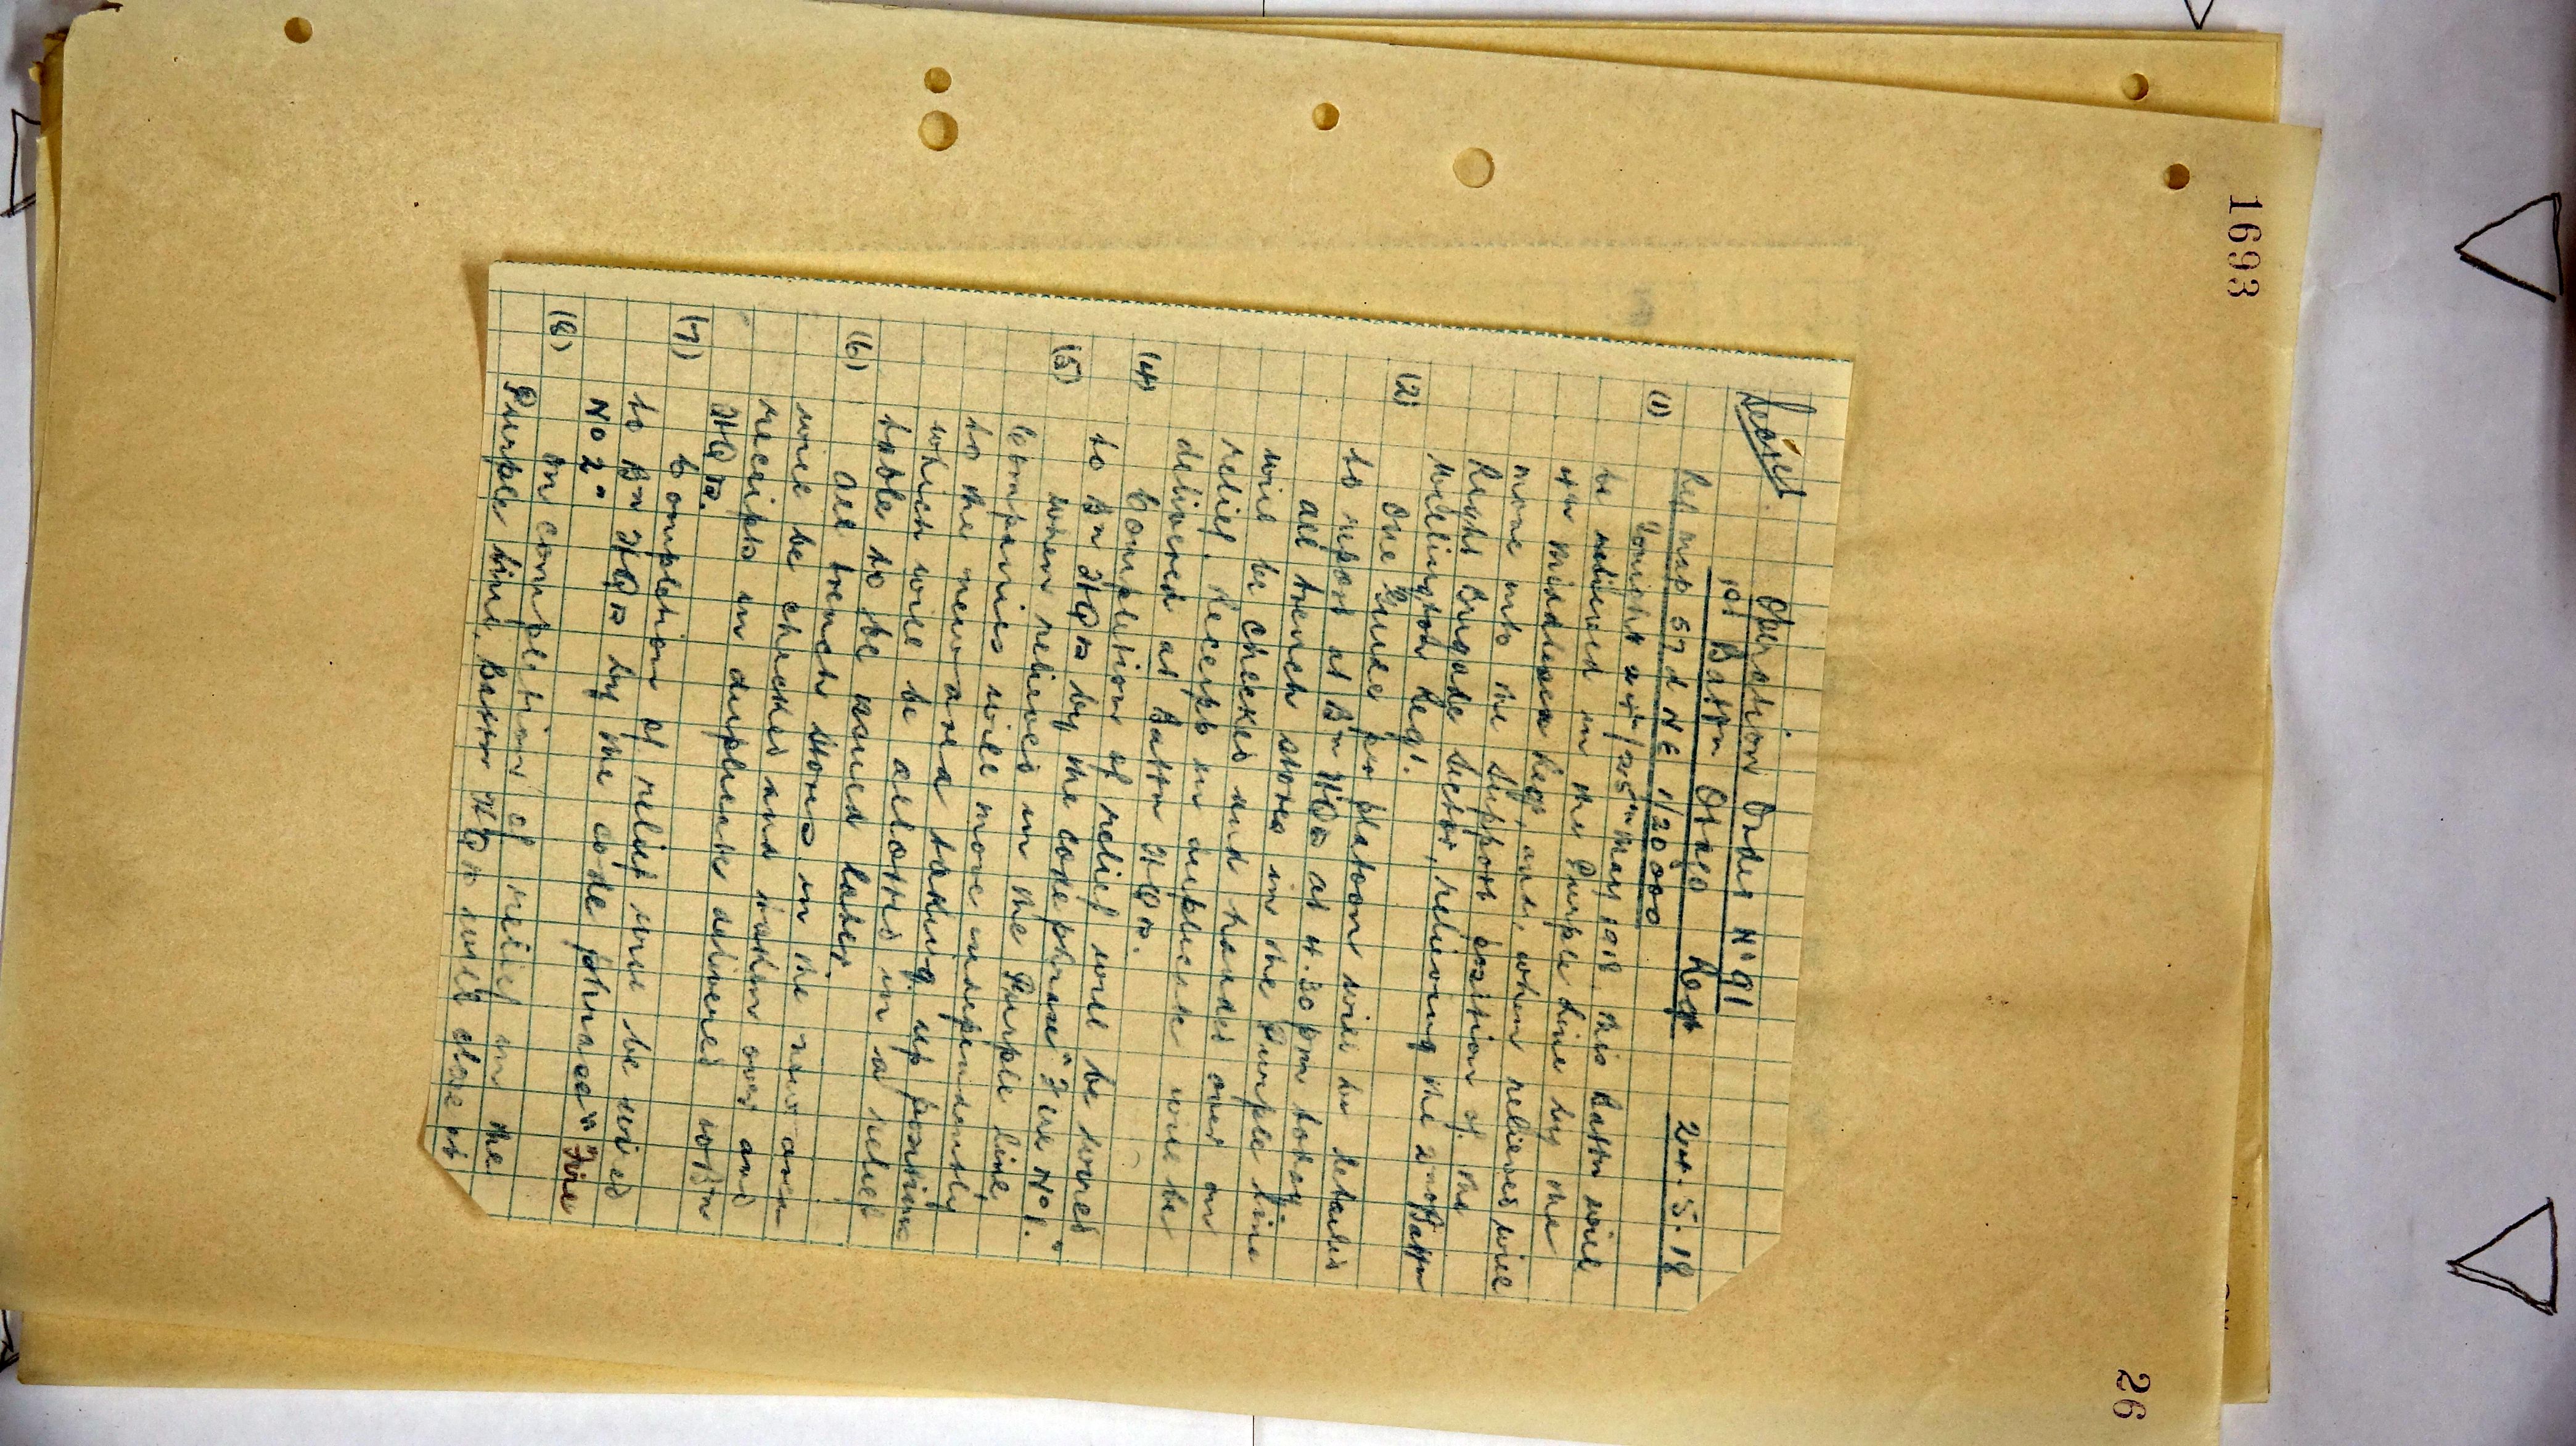 1693
Secret.
Operation Order No 91
1st Battn Otago Regt
Ref map 57d NE 1/20000 24.5.18
(1) Tonight 24th/25th May 1918. this Battn will
be relieved in the Purple Line by the
4th Middlesex Regt, and, when relieved will
move into the Support position of the
Right Brigade Sector, relieving the 2nd Battn
Wellington Regt.
(2) One Guide per platoon will be detailed
to report at Bn HQrs at 4.30 pm today.
all trench stores in the Purple Line
will be checked and handed over on
relief. Receipts in duplicate will be
delivered at Battn HQrs.
(4) Completion of relief will be wired
to Bn HQrs by the code phrase "Fire No 1."
(5) When relieved in the Purple Line,
Companies will move independently
to the new area taking up positions
which will be allotted in a relief
table to be issued later.
(6) All trench stores in the new area
will be checked and taken over and
receipts in duplicate delivered to Bn
HQrs.
(7) Completion of relief will be wired
to Bn HQrs by the code phrase "Fire
No 2"
(8) On completion of relief in the
Purple Line, Battn HQrs will close at
26